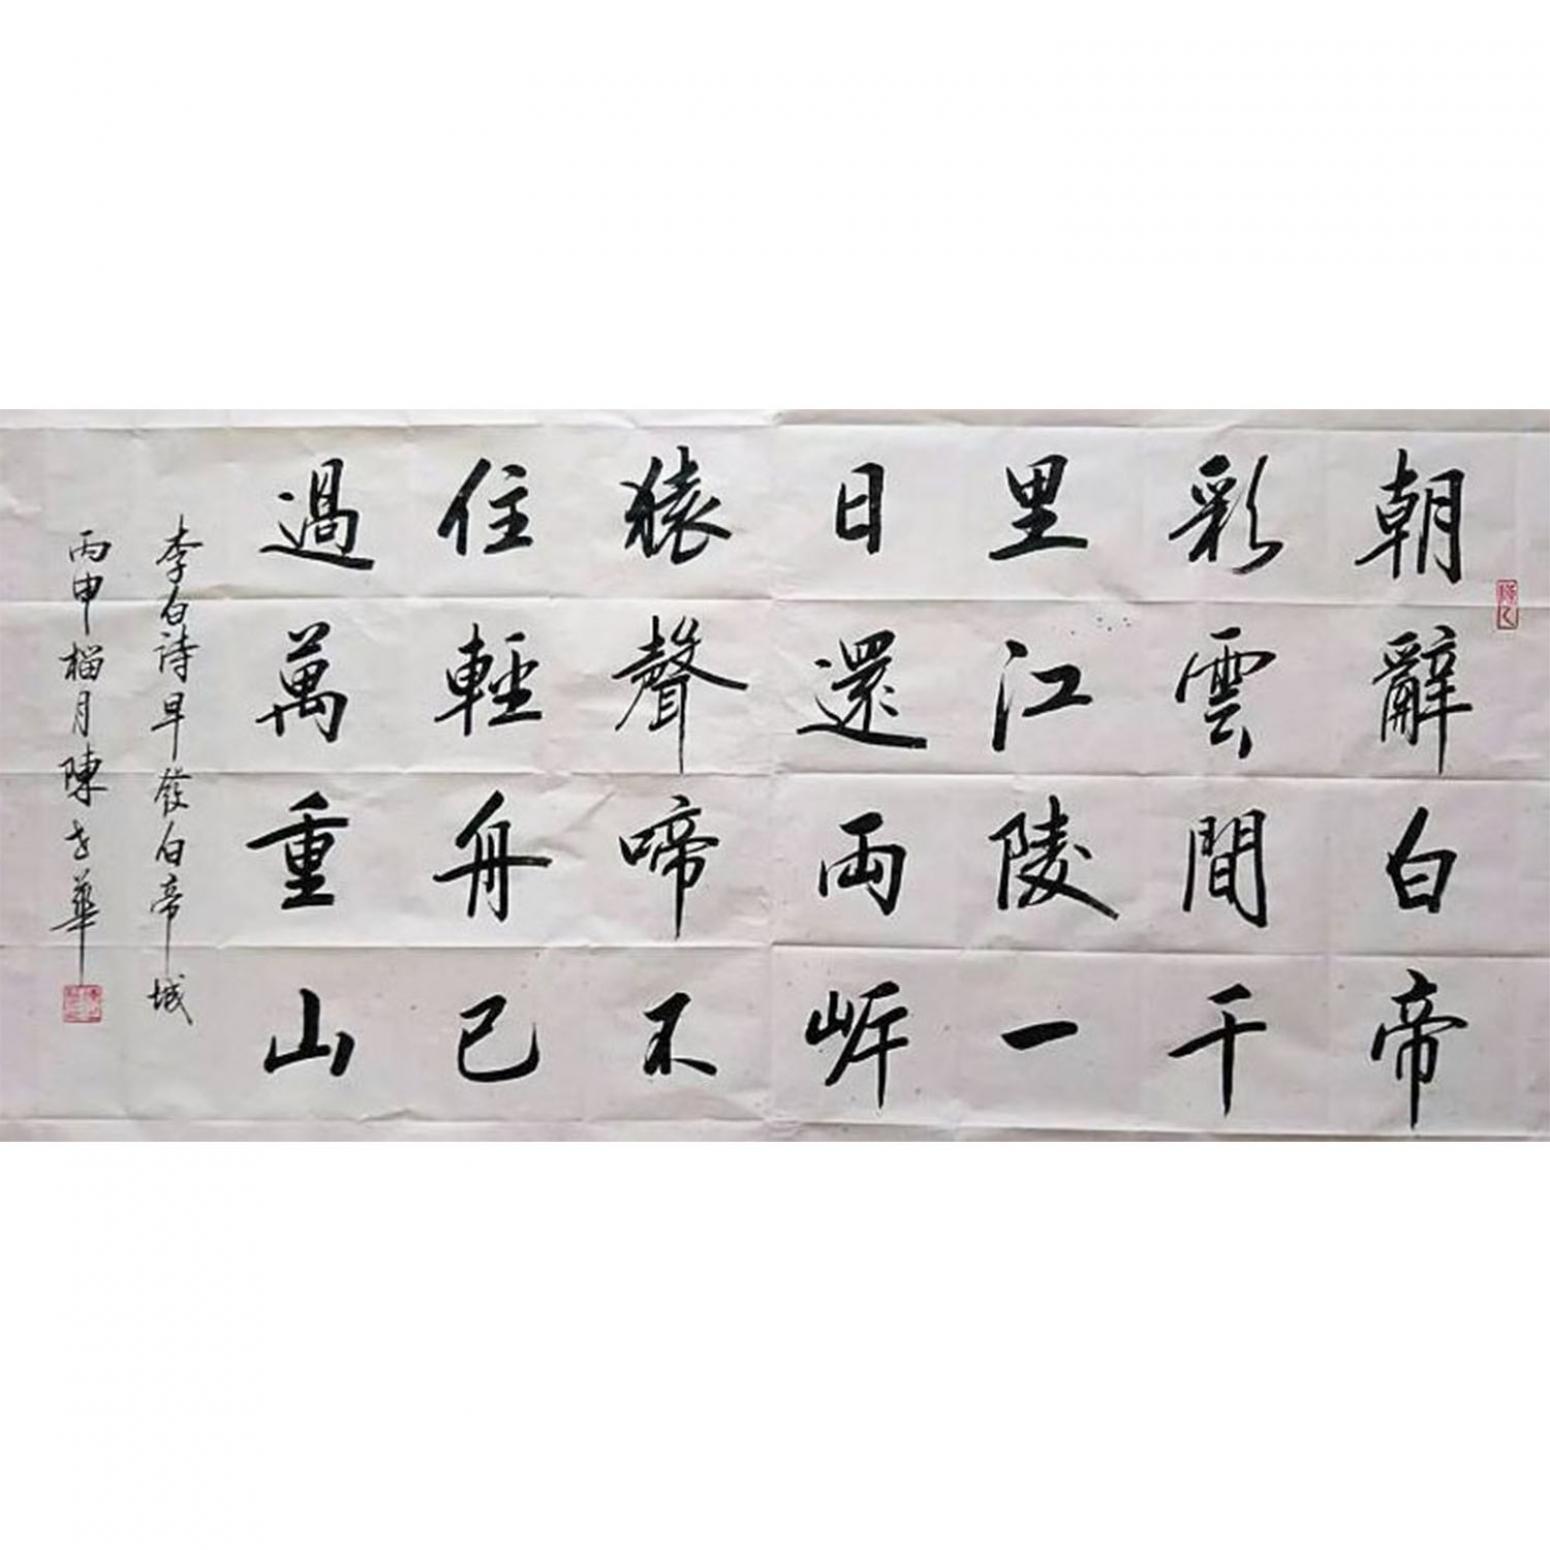 朝辭白帝
彩雲間千
里江陵一
日還兩岸
猿聲啼不
住輕舟已
過萬重山
李白詩早發白帝城
丙申榴月陳世華